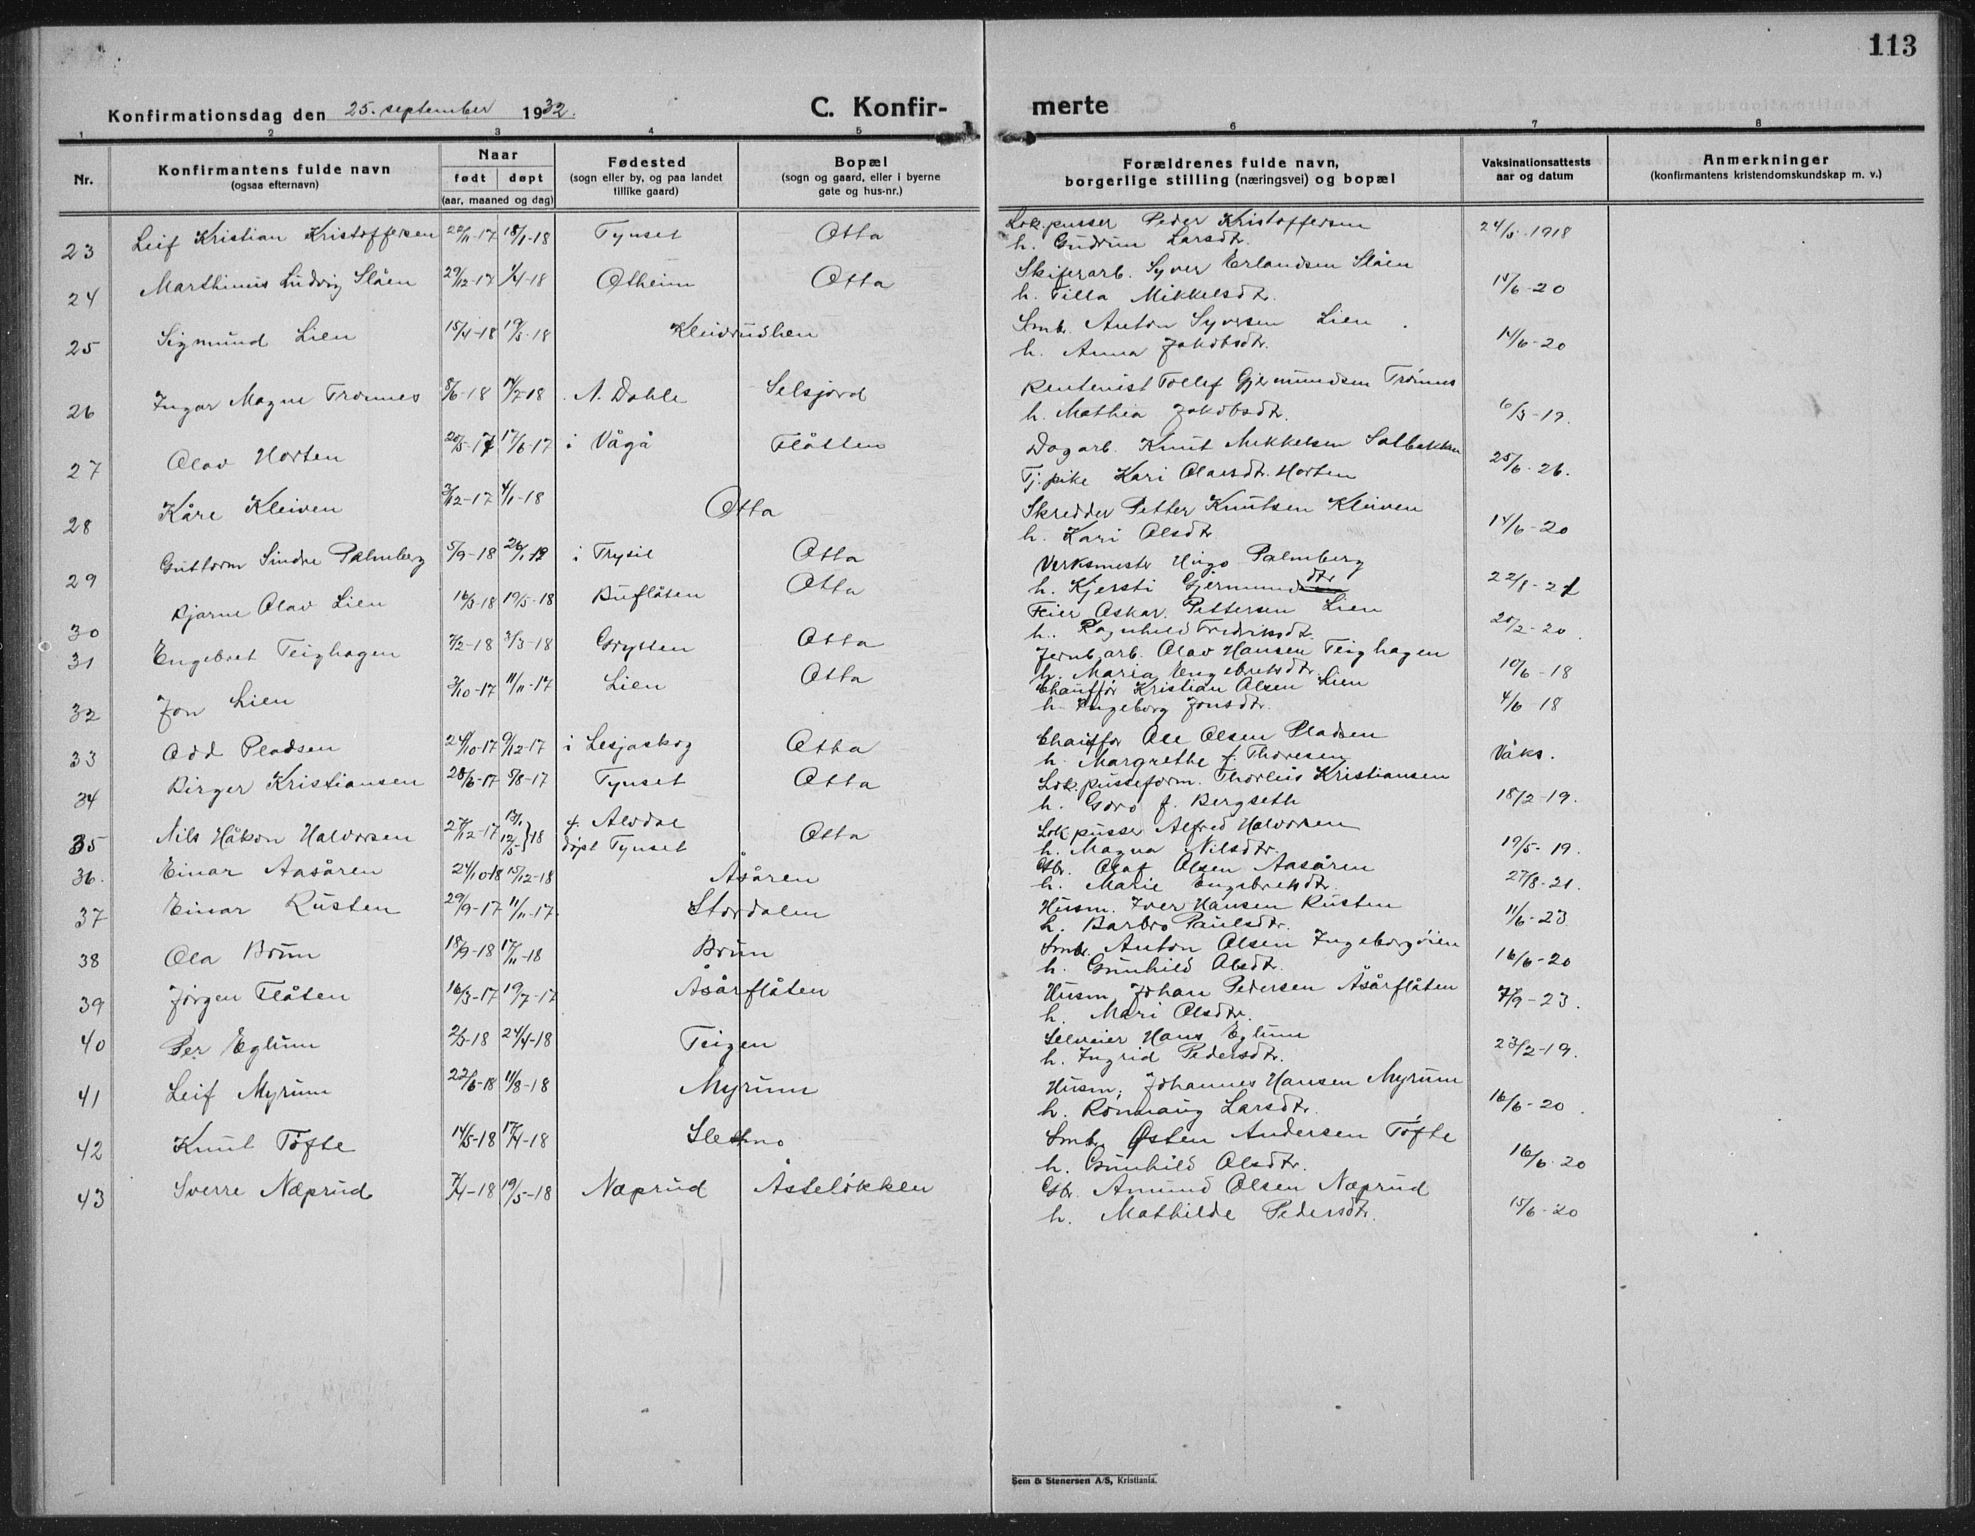 113
Konfirmationsdag den 25. september 1932. C. Konfir- merte
1 2 3 4 5 6 7 8
Nr. Konfirmantens fulde navn (ogsaa efternavn) Naar født døpt (aar, maaned og dag) Fødested (sogn eller by, og paa landet tillike gaard) Bopæl (sogn og gaard, eller i byerne gate og hus-nr.) Forældrenes fulde navn, borgerlige stilling (næringsvei) og bopæl Vaksinationsattests aar og datum Anmerkninger (konfirmantens kristendomskundskap m. v.)
23 Leif Kristian Kristoffersen 22/11-17 18/1-18 Tynset Otta Lok.pusser Peder Kristoffersen 24/5-1918
h. Gudrun Larsdtr.
24 Marthinus Ludvig Slåen 29/12-17 1/4-18 Otheim Otta Skiferarb. Syver Erlandsen Slåen 15/6-20
h. Tilla Mikkelsdtr.
25 Sigmund Lien 15/4-18 19/5-18 Kleivrudlien Smbr. Anton Syversen Lien 14/6-20
h. Anna Jakobsdtr.
26 Ingar Magne Tromnes 8/6-18 14/7-18 N. Dahle Selsjord Rentenist Tollef Gjermundsen Tromnes 6/3-19.
h. Mathia Jakobsdtr.
27 Olav Horten 20/5-17 17/6-17 i Vågå Flåtten Dagarb. Knut Mikkelsen Solbakken 25/6-26.
Tj.pike Kari Olavsdtr. Horten
28 Kåre Kleiven 3/12-17 4/1-18 Otta Skredder Petter Knutsen Kleiven 14/6-20
h. Kari Olsdtr
29 Guttorm Sindre Palmberg 5/9-18 26/1-19 i Trysil Otta Verksmester Hugo Palmberg 22/8-21
h. Kjersti Gjermunddtr
30 Bjarne Olav Lien 16/3-18 19/5-18 Buflåten Otta Feier Oskar Pettersen Lien 20/2-20.
h. Ragnhild Fredriksdtr.
31 Engebret Teighagen 7/2-18 3/3-18 Grytten Otta Jernb.arb. Olav Hansen Teighagen 10/6-18
h. Maria Engebretsdtr.
32 Jon Lien 3/10-17 11/11-17 Lien Otta Chauffør Kristian Olsen Lien 4/6-18
h. Ingeborg Jonsdtr.
33 Odd Pladsen 24/10-17 9/12-17 i Lesjaskog Otta Chauffør Ole Olsen Pladsen Vaks.
h. Margrethe f. Thoresen
34 Birger Kristiansen 28/6-17 5/8-17 Tynset Otta Lok.pusseform. Thorleis Kristiansen 18/2-19.
h. Goro f. Bergseth
35 Nils Håkon Halvorsen 27/12-17 13/1 12/5 }18 f. Alvdal døpt Tynset Otta Lok.pusser Alfred Halvorsen 19/5-19.
h. Magna Nilsdtr.
36. Einar Aasåren 24/10-18 15/12-18 Åsåren Gbr. Olaf Olsen Aasåren 27/8-21.
h. Marie Engebretsdtr.
37 Einar Rusten 29/9-17 11/11-17 Stordalen Husm. Iver Hansen Rusten 11/6-23
h. Barbro Paulsdtr.
38 Ola Brun 18/9-18 17/11-18 Brun Smbr. Anton Olsen Ingeborgøien 16/6-20
h. Gunhild Olsdtr.
39 Jørgen Flåten 16/3-17 19/7-17 Åsårflåten Husm Johan Pedersen Åsårflåten 7/9-23.
h. Mari Olsdtr.
40 Per Eglum 2/3-18 24/4-18 Teigen Selveier Hans Eglum 23/2-19.
h. Ingrid Pedersdtr.
41 Leif Myrum 22/6-18 11/8-18 Myrum Husm. Johannes Hansen Myrum 16/6-20.
h. Rønnaug Larsdtr.
42 Knut Tofte 14/3-18 17/4-18 Slethno Smbr. Østen Andersen Tofte 16/6-20
h. Gunhild Olsdtr.
43 Sverre Næprud 7/4-18 19/5-18 Næprud Åsteløkken Gbr. Amund Olsen Næprud 15/6-20
h. Mathilde Pedersdtr.
Sem & Stenersen A/S, Kristiania.